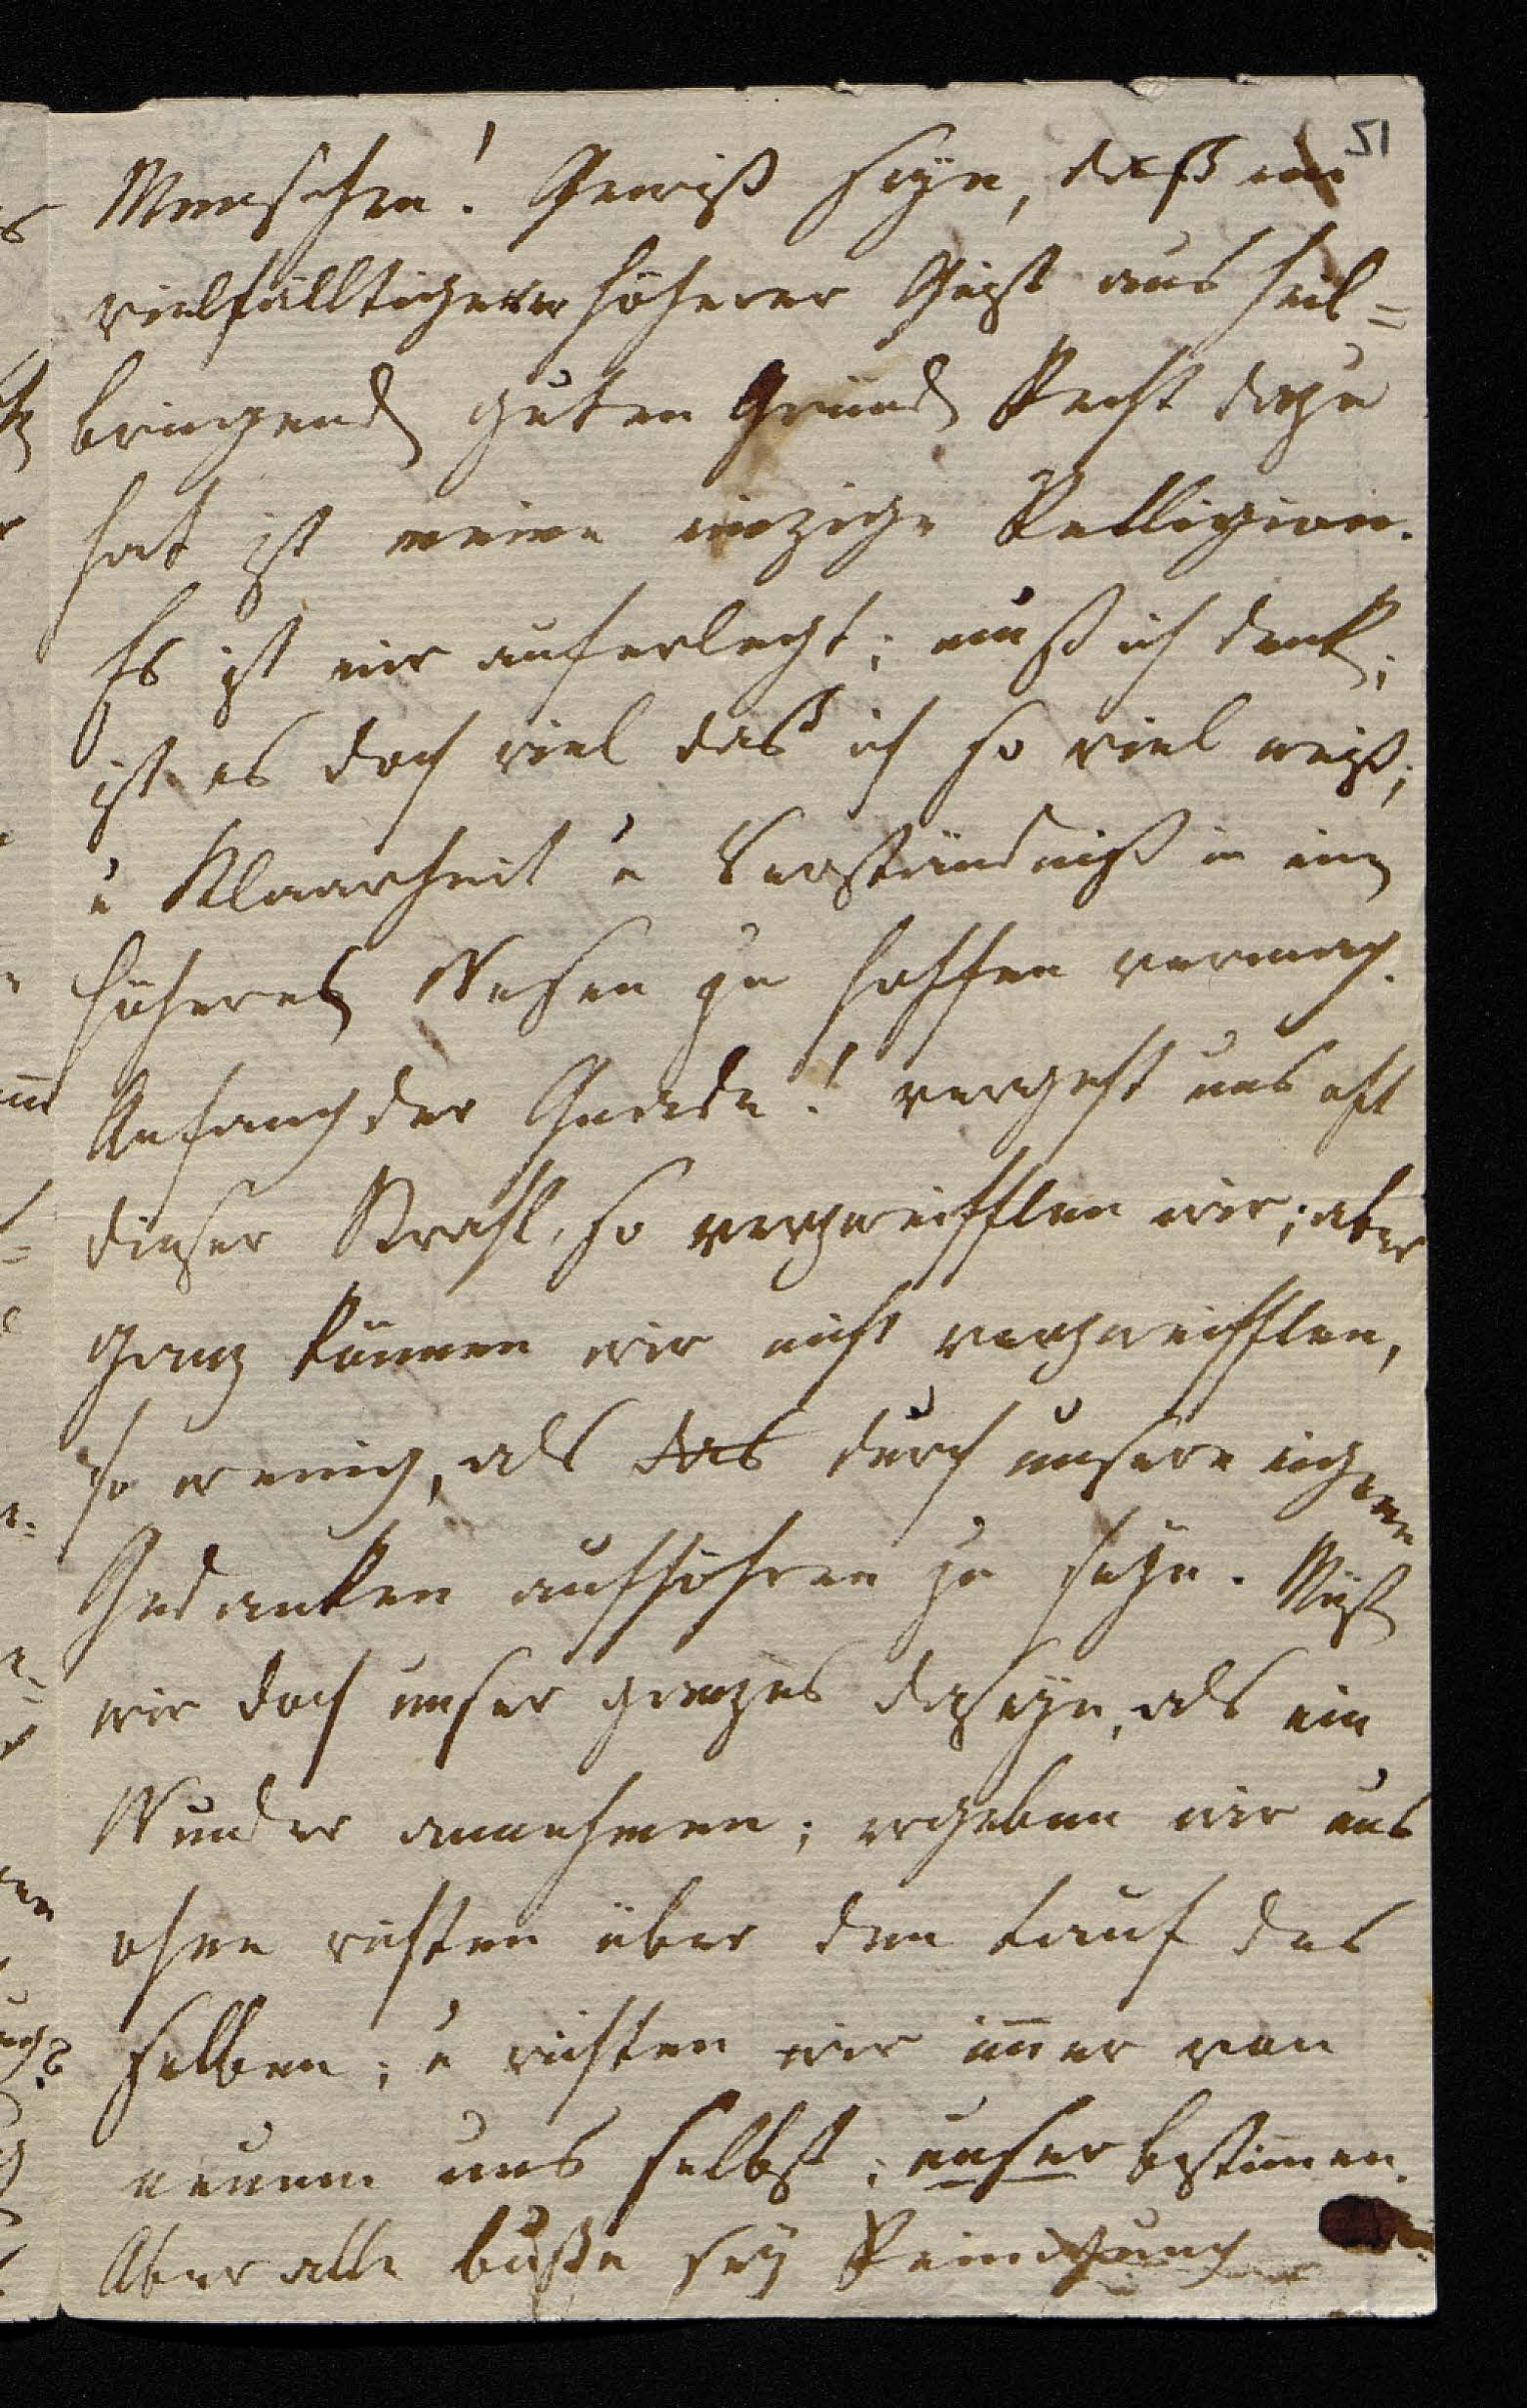 51
Menschen! Gewiß seyn, daß ein
vielfälltigerer höherer Geist aus heil=
bringend guten Grund Recht dazu
hat ist meine einzige Relligion.
Es ist mir auferlegt; muß ich denk;
ist es doch viel daß ich so viel weiß;
u Klaarheit u Verständniß in ein
höheres Wesen zu hoffen vermag.
Anfang der Gnade! vergeht uns oft
dieser Strahl, so verzweifflen wir; aber
ganz können wir nicht verzweifflen,
so wenig, als das durch unsere eigenen
Gedanken aufhören zu seyn. Müß
wir doch unser ganzes Daseyn, als ein
Wunder annehmen; ergeben wir uns
ohne richten über den Lauf des
selben; u richten wir immer von
neuem uns selbst; unser bestimmen.
Aber alle buße sey Reinigung